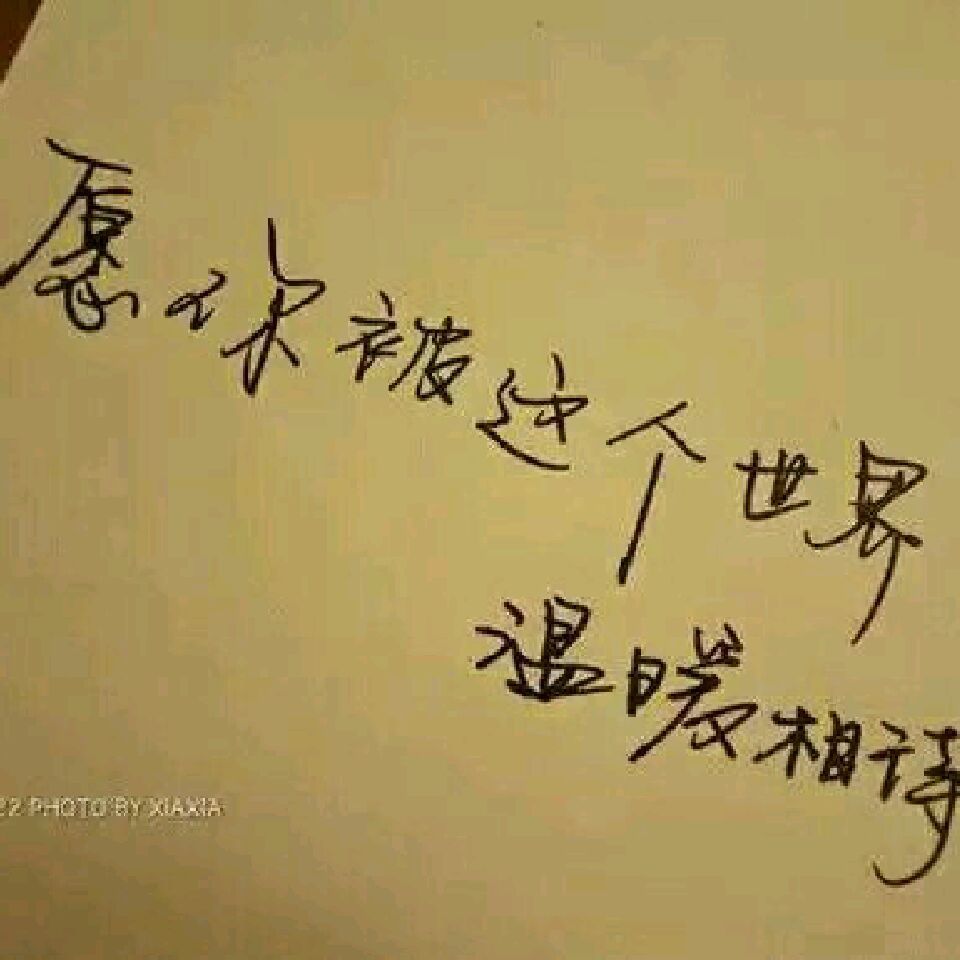 愿你被这个世界
温暖相诗
22 PHOTO BY XIAXIA